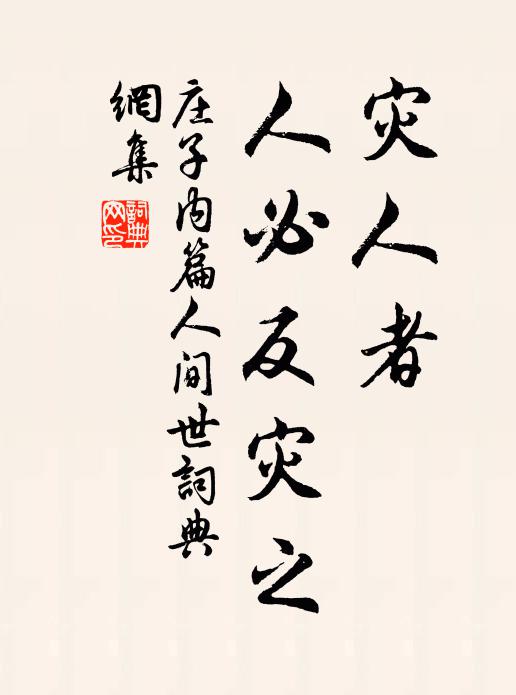 灾人者
人必反灾之
庄子内篇人间世詞典
網集
詞典
网印